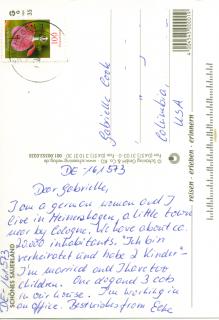 100
Gabrielle Cook
Columbia,
USA
reisen - erleben - erinnern
SCHÖNES SAUERLAND
DE 161573
Dear Gabrielle,
I am a german women and I
live in Meinerzhagen, a little town
near by Cologne. We have about ca.
20000 inhabitants. "Ich bin
verheiratet und habe 2 Kinder" -
I'm married and I have two
children. One dog and 3 cats
in our house. I'm working in
an office. Best wishes from
DE 161573